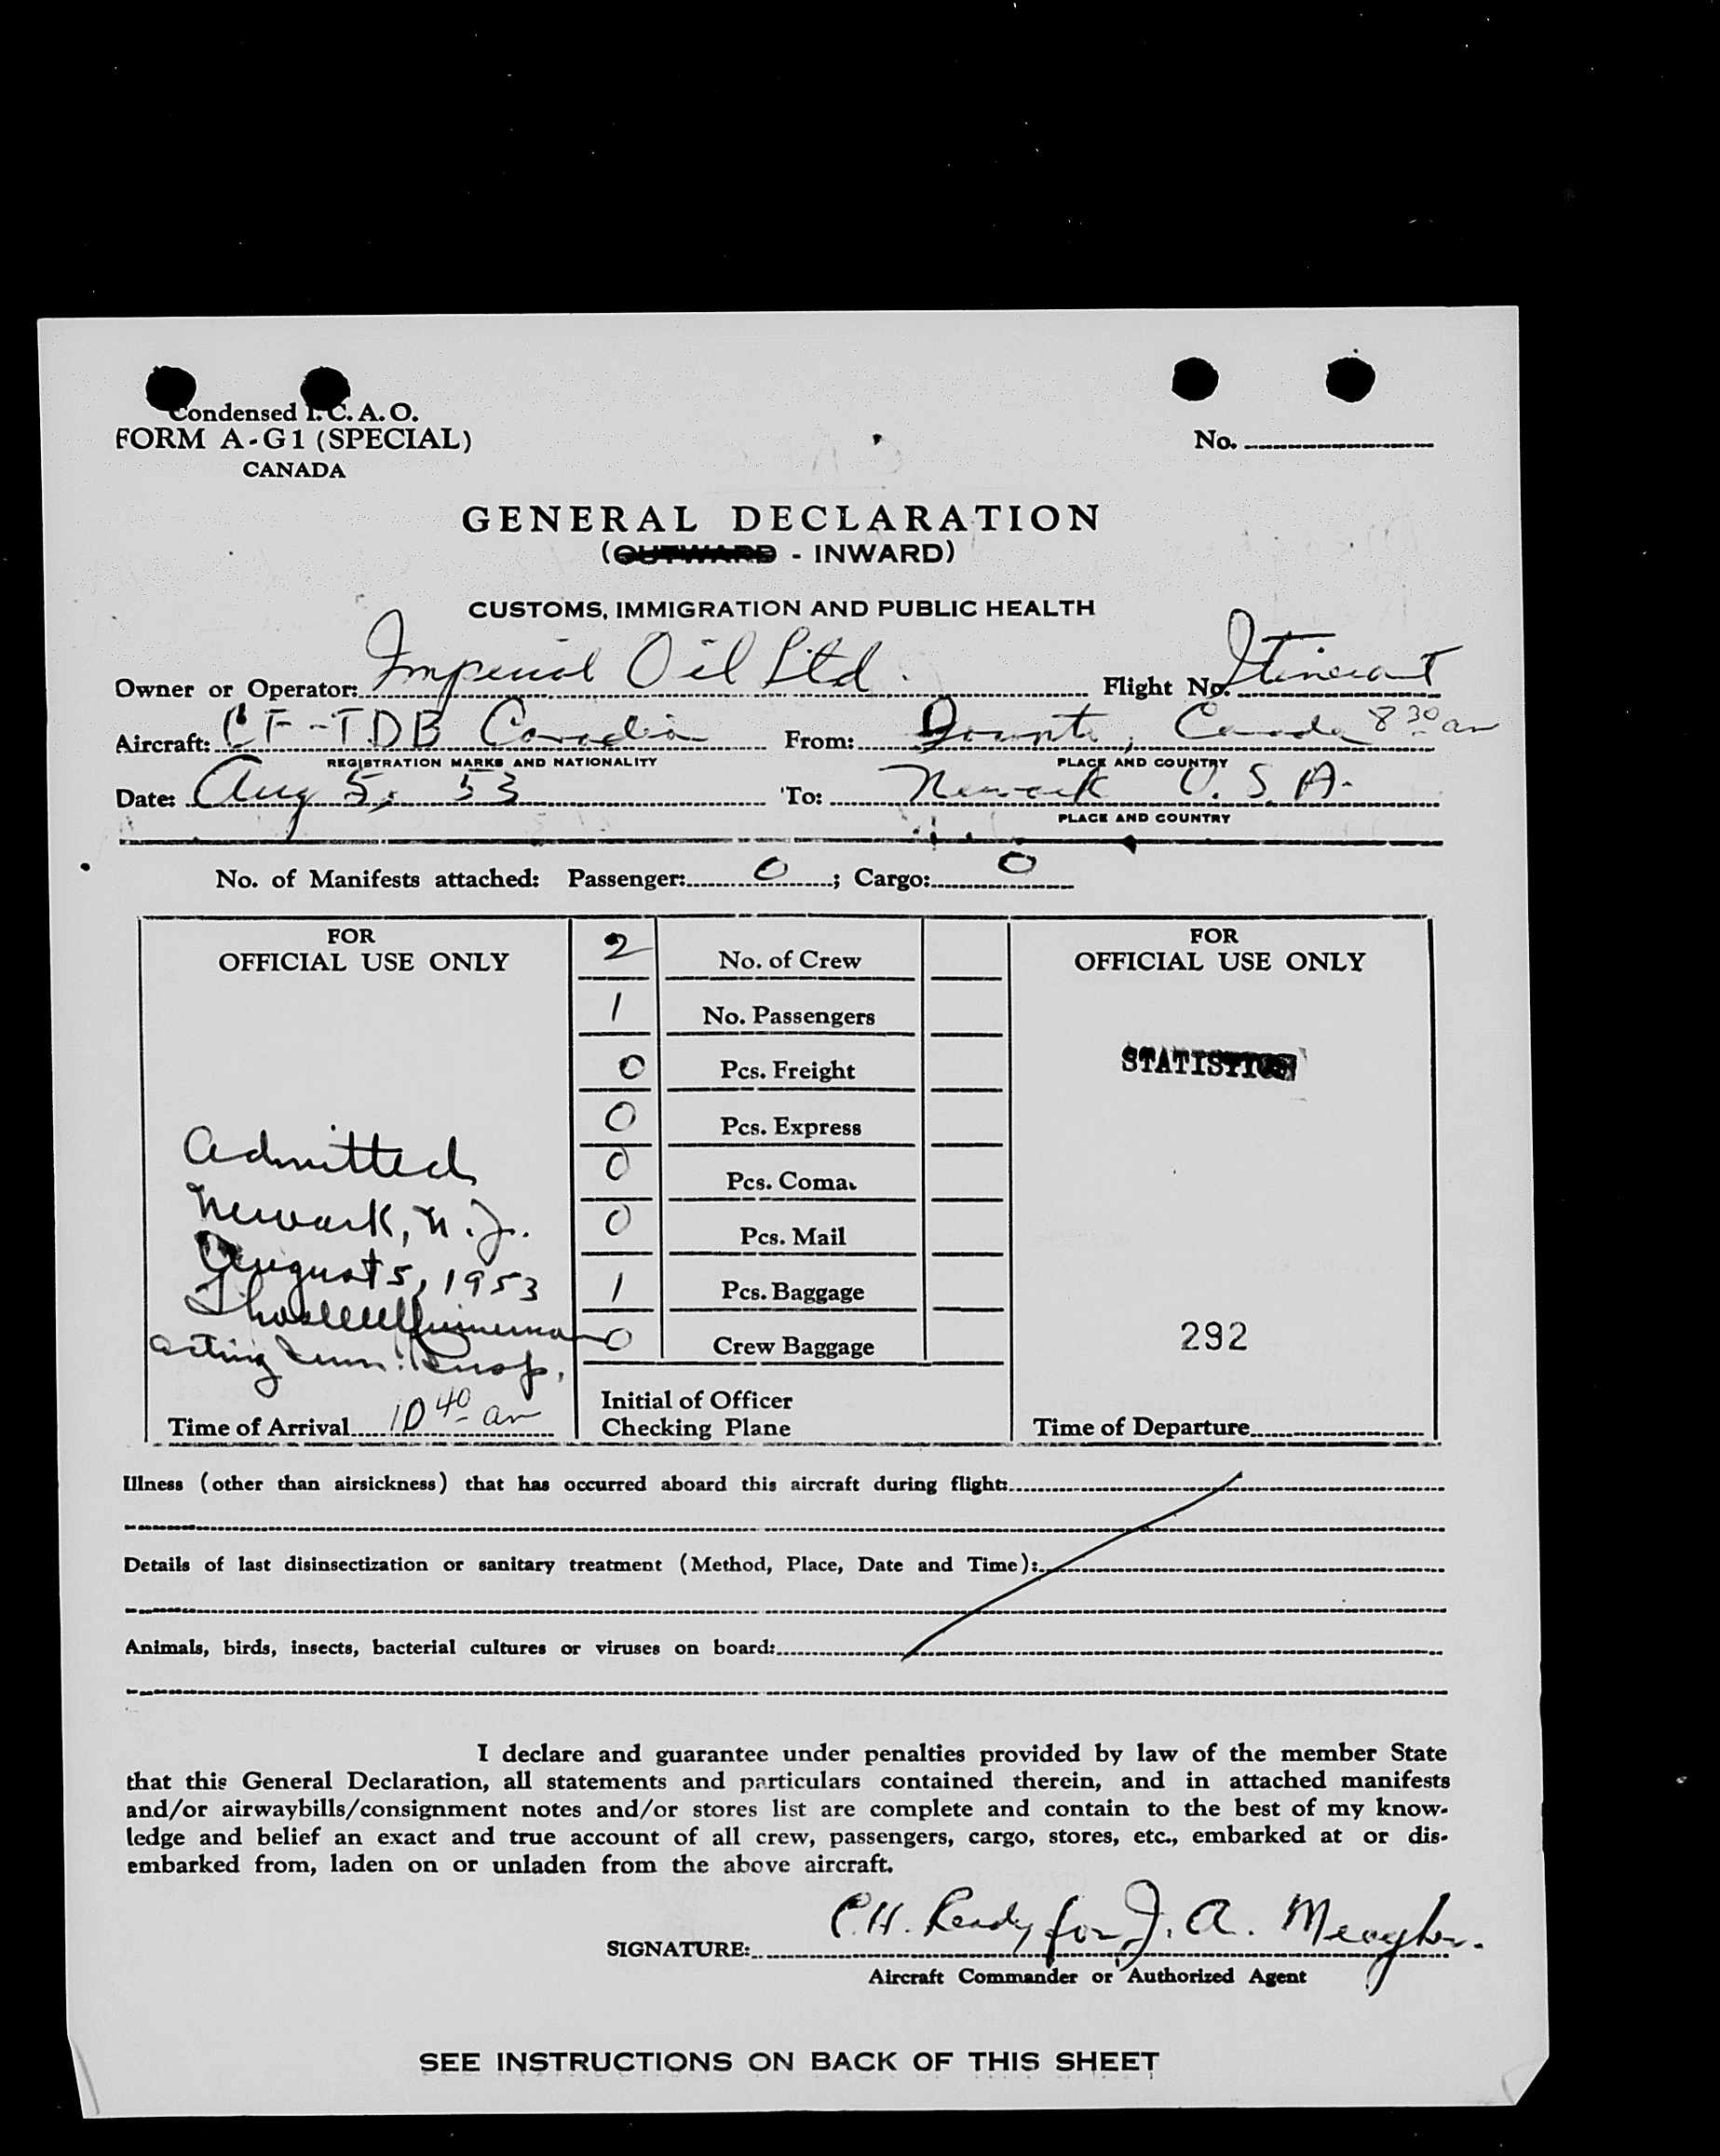 Condensed I.C.A.O.
FORM A-G1 (SPECIAL)
CANADA
No.
GENERAL DECLARATION
(OUTWARD - INWARD)
CUSTOMS, IMMIGRATION AND PUBLIC HEALTH
Owner or Operator: Imperial Oil Ltd. Flight No. Itinerant
Aircraft: CF-TDB Canadian From: Toronto, Canada 8 30 am
REGISTRATION MARKS AND NATIONALITY PLACE AND COUNTRY
Date: Aug 5, 53 To: Newark U.S.A.
PLACE AND COUNTRY
No. of Manifests attached: Passenger: 0; Cargo: 0
FOR
OFFICIAL USE ONLY
Admitted
Newark, N.J.
August 5, 1953
Acting Imm. Insp.
Time of Arrival 10 40 am
2 No. of Crew
1 No. Passengers
0 Pcs. Freight
0 Pcs. Express
0 Pcs. Comat
0 Pcs. Mail
1 Pcs. Baggage
0 Crew Baggage
Initial of Officer
Checking Plane
FOR
OFFICIAL USE ONLY
STATISTICS
292
Time of Departure
Illness (other than airsickness) that has occurred aboard this aircraft during flight:
Details of last disinsectization or sanitary treatment (Method, Place, Date and Time):
Animals, birds, insects, bacterial cultures or viruses on board:
I declare and guarantee under penalties provided by law of the member State
that this General Declaration, all statements and particulars contained therein, and in attached manifests
and/or airwaybills/consignment notes and/or stores list are complete and contain to the best of my know-
ledge and belief an exact and true account of all crew, passengers, cargo, stores, etc., embarked at or dis-
embarked from, laden on or unladen from the above aircraft.
SIGNATURE: C.H. Ready for J. A. Meagher.
Aircraft Commander or Authorized Agent
SEE INSTRUCTIONS ON BACK OF THIS SHEET